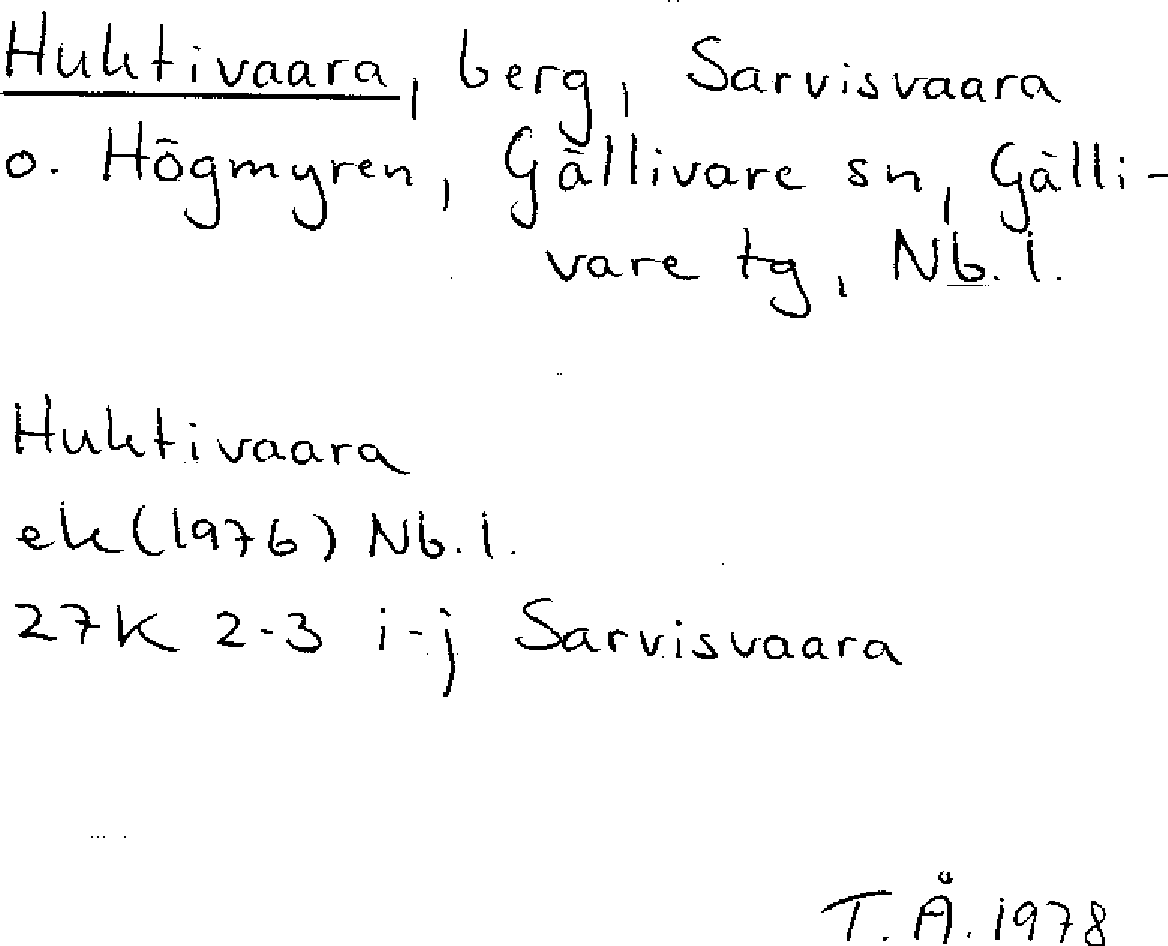 Huhtivaara, berg, Sarvisvaara
o. Högmyren, Gällivare sn, Gälli-
vare tg, Nb. l.
Huhtivaara
ek (1976) Nb. l.
27K 2-3 i-j Sarvisvaara
T. Å. 1978